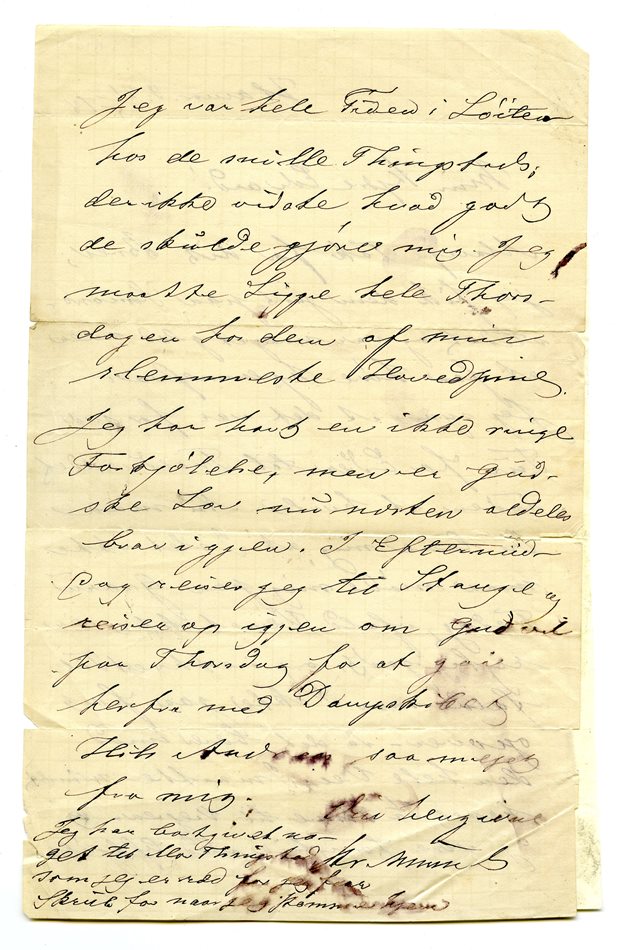 Jeg var hele Tiden i Löiten
hos de snille Thingstads,
der ikke vidste hvad godt
de skulde gjöre mig. Jeg
maatte Ligge hele Thors-
dagen hos dem af min
slemmeste Hovedpine.
Jeg har havt en ikke ringe
Forkjölelse, men er Gud-
ske Lov nu næsten aldeles
bra igjen. I Eftermid-
dag reiser jeg til Stange og
reiser op igjen om Gud vil
paa Thorsdag for at gaa
herfra med Dampskibet
Hils saa meget
fra mig. Din hengivne
Jeg har bortgivet no-
get til Mor Thingstad Chr. Munch
som jeg er ræd for jeg faar
Skrub for naar jeg kommer hjem